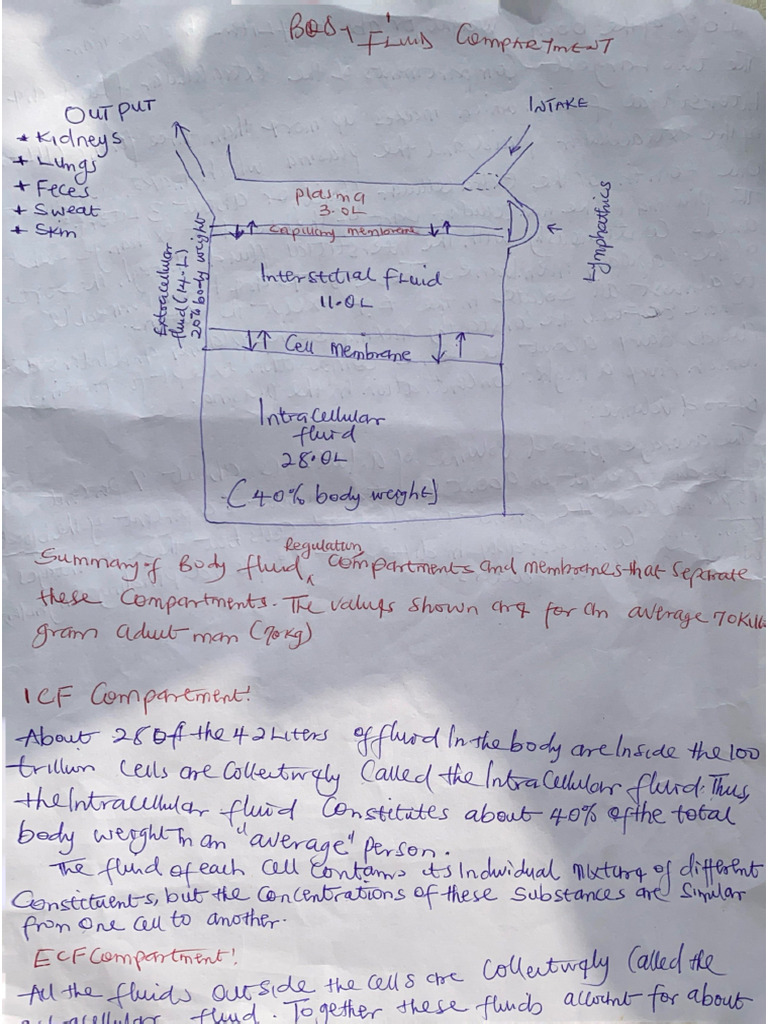 BODY FLUID COMPARTMENT
OUTPUT
* Kidneys
+ Lungs
+ Feces
+ Sweat
+ Skin
INTAKE
plasma
3.0L
Capillary membrane
Lymphathics
Extracellular
fluid (14.L)
20% body weight
Interstitial fluid
11.0L
Cell Membrane
Intracellular
fluid
28.0L
(40% body weight)
Summary of Body fluid Regulation Compartments and membranes that Seperate
these Compartments. The values shown are for an average 70Kilo
gram adult man (70kg)
ICF Compartment!
About 28 off the 42 Liters of fluid In the body are Inside the 100
trillion cells are Collectively Called the Intracellular fluid. Thus,
the Intracellular fluid Constitutes about 40% of the total
body weight in an "average" person.
The fluid of each Cell Contains its Individual mixture of different
Constituents, but the Concentrations of these Substances are Similar
from One Cell to another.
ECF Compartment!
All the fluids outside the cells are Collectively Called the
fluid. Together these fluids account for about